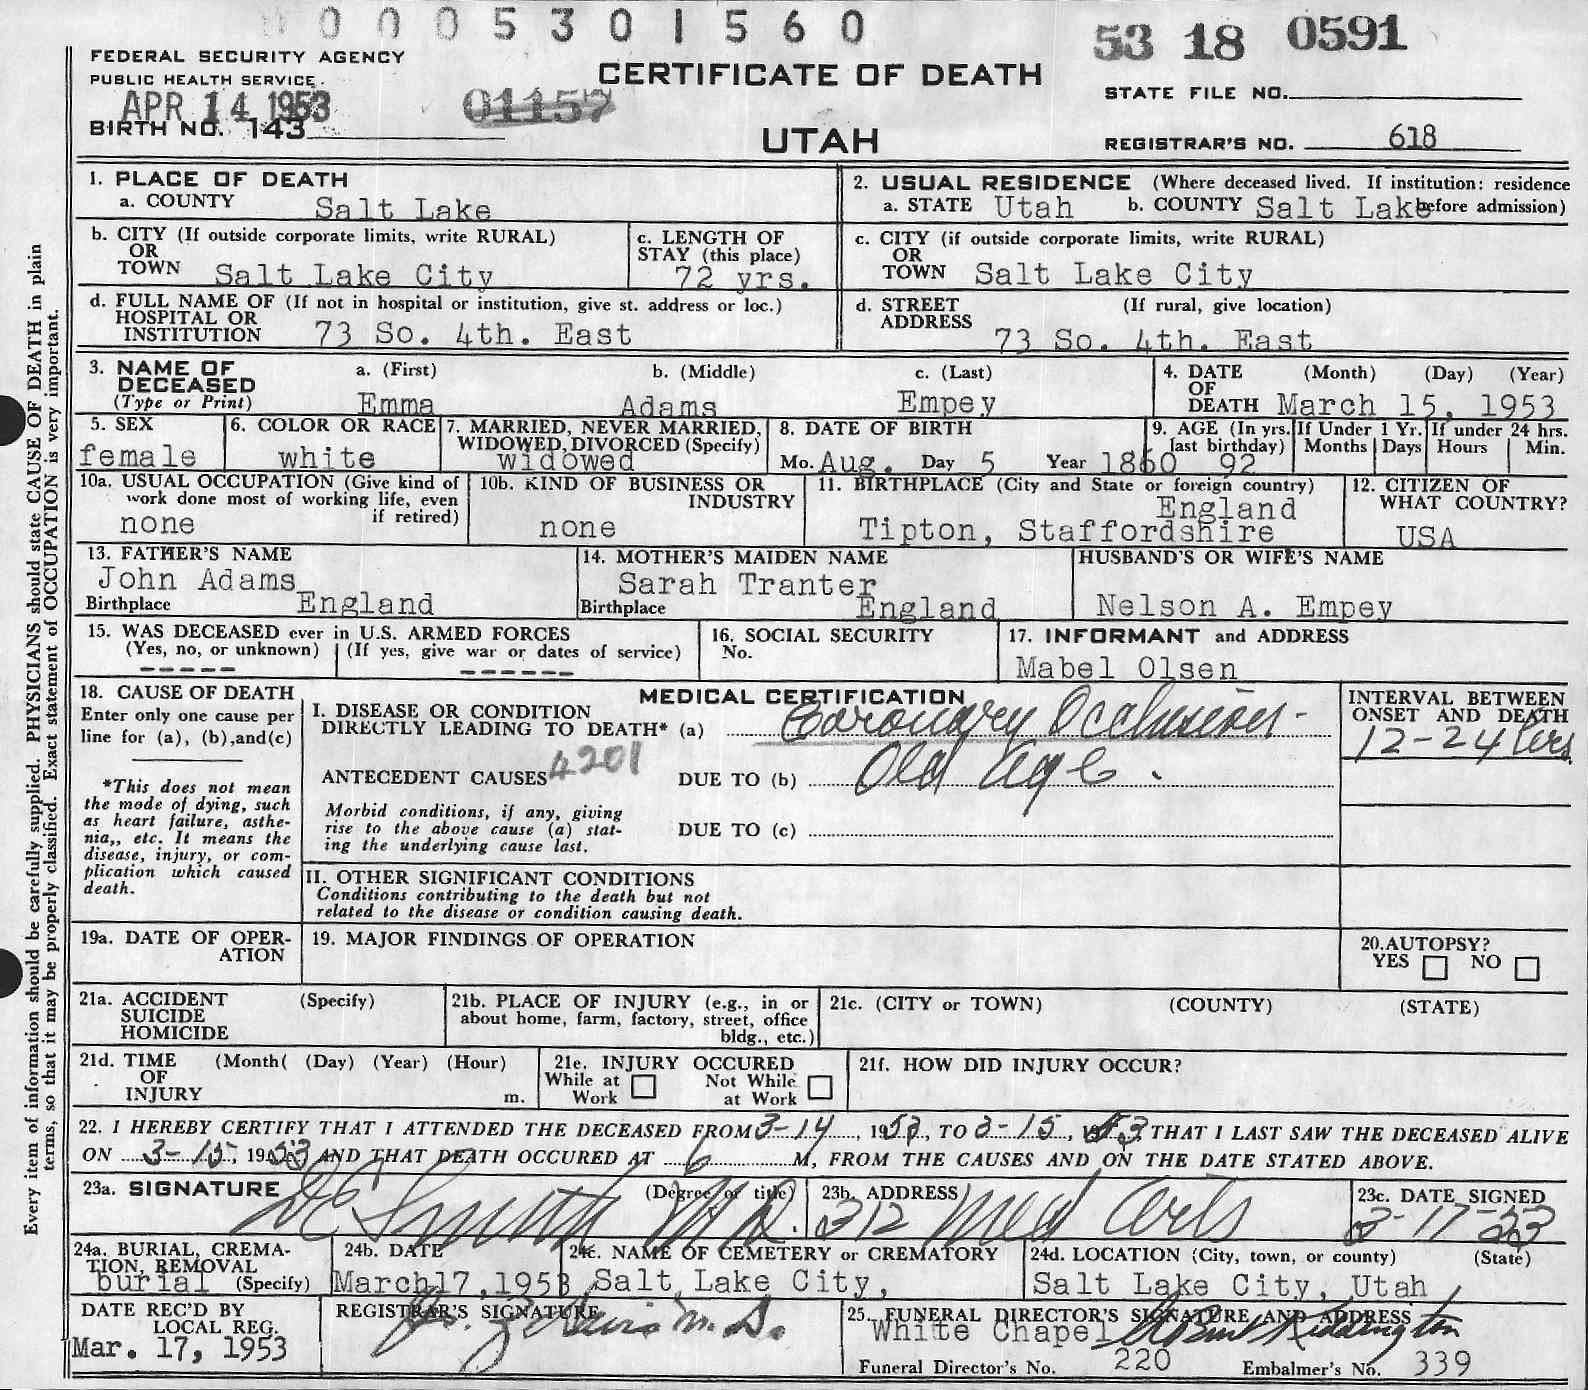 0 0 0 5 3 0 1 5 6 0
53 18 0591
FEDERAL SECURITY AGENCY
PUBLIC HEALTH SERVICE.
CERTIFICATE OF DEATH
STATE FILE NO.
APR 14 1953
01157
BIRTH NO. 143
UTAH
REGISTRAR'S NO. 618
1. PLACE OF DEATH
a. COUNTY Salt Lake
2. USUAL RESIDENCE (Where deceased lived. If institution: residence
a. STATE Utah b. COUNTY Salt Lake before admission)
b. CITY (If outside corporate limits, write RURAL)
OR
TOWN Salt Lake City
c. LENGTH OF
STAY (this place)
72 yrs.
c. CITY (if outside corporate limits, write RURAL)
OR
TOWN Salt Lake City
d. FULL NAME OF (If not in hospital or institution, give st. address or loc.)
HOSPITAL OR
INSTITUTION 73 So. 4th. East
d. STREET (If rural, give location)
ADDRESS
73 So. 4th. East
3. NAME OF
DECEASED
(Type or Print)
a. (First) b. (Middle) c. (Last)
Emma Adams Empey
4. DATE (Month) (Day) (Year)
OF
DEATH March 15, 1953
5. SEX
female
6. COLOR OR RACE
white
7. MARRIED, NEVER MARRIED,
WIDOWED, DIVORCED (Specify)
widowed
8. DATE OF BIRTH
Mo. Aug. Day 5 Year 1860
9. AGE (In yrs.
last birthday)
92
If Under 1 Yr.
Months Days
If under 24 hrs.
Hours Min.
10a. USUAL OCCUPATION (Give kind of
work done most of working life, even
if retired)
none
10b. KIND OF BUSINESS OR
INDUSTRY
none
11. BIRTHPLACE (City and State or foreign country)
England
Tipton, Staffordshire
12. CITIZEN OF
WHAT COUNTRY?
USA
13. FATHER'S NAME
John Adams
Birthplace England
14. MOTHER'S MAIDEN NAME
Sarah Tranter
Birthplace England
HUSBAND'S OR WIFE'S NAME
Nelson A. Empey
15. WAS DECEASED ever in U.S. ARMED FORCES
(Yes, no, or unknown) (If yes, give war or dates of service)
----- ------
16. SOCIAL SECURITY
No.
17. INFORMANT and ADDRESS
Mabel Olsen
18. CAUSE OF DEATH
Enter only one cause per
line for (a), (b),and(c)
*This does not mean
the mode of dying, such
as heart failure, asthe-
nia,, etc. It means the
disease, injury, or com-
plication which caused
death.
MEDICAL CERTIFICATION
I. DISEASE OR CONDITION
DIRECTLY LEADING TO DEATH* (a) Coronary Occlusion-
ANTECEDENT CAUSES 4201 DUE TO (b) Old Age.
Morbid conditions, if any, giving
rise to the above cause (a) stat-
ing the underlying cause last.
DUE TO (c)
INTERVAL BETWEEN
ONSET AND DEATH
12-24 hrs
II. OTHER SIGNIFICANT CONDITIONS
Conditions contributing to the death but not
related to the disease or condition causing death.
19a. DATE OF OPER-
ATION
19. MAJOR FINDINGS OF OPERATION
20. AUTOPSY?
YES NO
21a. ACCIDENT (Specify)
SUICIDE
HOMICIDE
21b. PLACE OF INJURY (e.g., in or
about home, farm, factory, street, office
bldg., etc.)
21c. (CITY or TOWN) (COUNTY) (STATE)
21d. TIME (Month( (Day) (Year) (Hour)
OF
INJURY m.
21e. INJURY OCCURED
While at Not While
Work at Work
21f. HOW DID INJURY OCCUR?
22. I HEREBY CERTIFY THAT I ATTENDED THE DECEASED FROM 3-14, 1953, TO 3-15, 1953, THAT I LAST SAW THE DECEASED ALIVE
ON 3-15, 1953 AND THAT DEATH OCCURED AT 6 M, FROM THE CAUSES AND ON THE DATE STATED ABOVE.
23a. SIGNATURE (Degree or title)
D C Smith M D.
23b. ADDRESS
312 Med Arts
23c. DATE SIGNED
3-17-53
24a. BURIAL, CREMA-
TION, REMOVAL
burial (Specify)
24b. DATE
March 17, 1953
24c. NAME OF CEMETERY or CREMATORY
Salt Lake City,
24d. LOCATION (City, town, or county) (State)
Salt Lake City, Utah
DATE REC'D BY
LOCAL REG.
Mar. 17, 1953
REGISTRAR'S SIGNATURE
M. D.
25. FUNERAL DIRECTOR'S SIGNATURE AND ADDRESS
White Chapel
Funeral Director's No. 220 Embalmer's No. 339
Every item of information should be carefully supplied. PHYSICIANS should state CAUSE OF DEATH in plain
terms, so that it may be properly classified. Exact statement of OCCUPATION is very important.